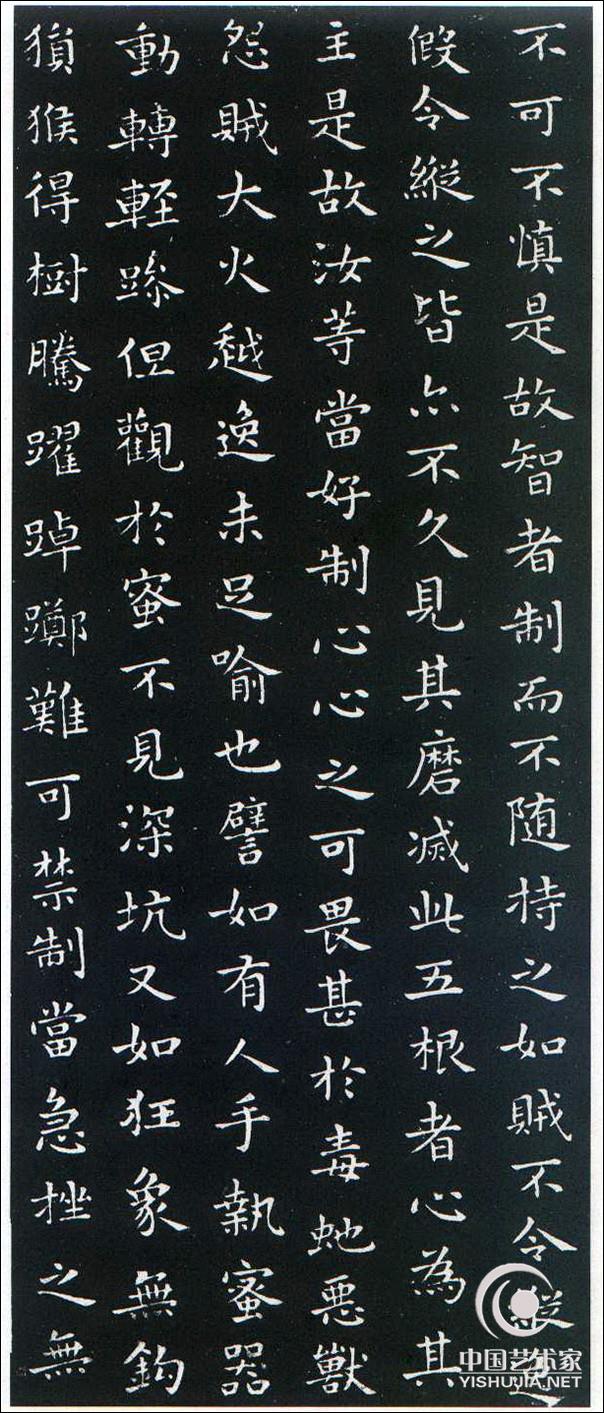 不可不慎是故智者制而不随持之如賊不令縱逸
假令縱之皆亦不久見其磨滅此五根者心為其
主是故汝等當好制心心之可畏甚於毒虵惡獸
怨賊大火越逸未足喻也譬如有人手執蜜器
動轉輕躁但觀於蜜不見深坑又如狂象無鈎
猨猴得樹騰躍踔躑難可禁制當急挫之無
中国艺术家
YISHUJIA.NET